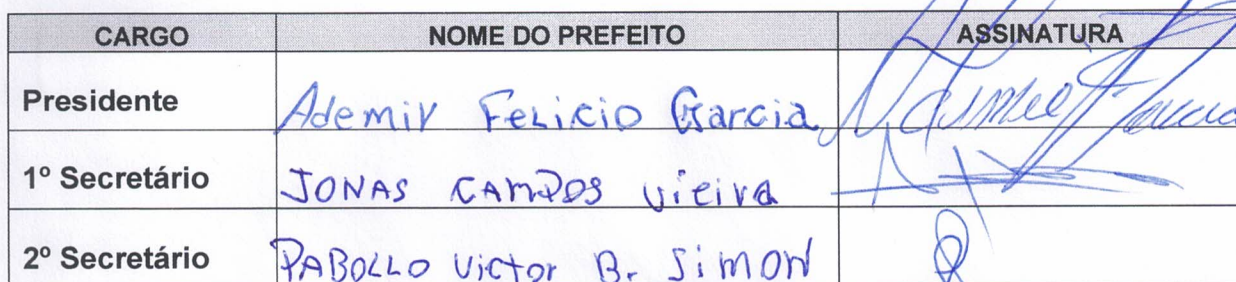 CARGO NOME DO PREFEITO ASSINATURA
Presidente Ademir Felicio Garcia
1º Secretário JONAS CAMPOS vieira
2º Secretário PABOLLO Victor B. Simon